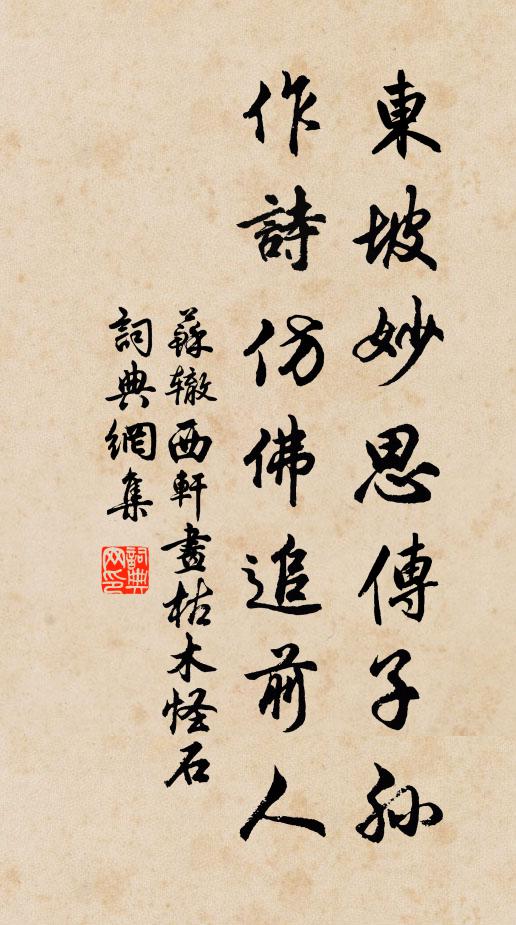 東坡妙思傳子孫
作詩仿佛追前人
蘇辙西軒畫枯木怪石
詞典網集
詞典網印